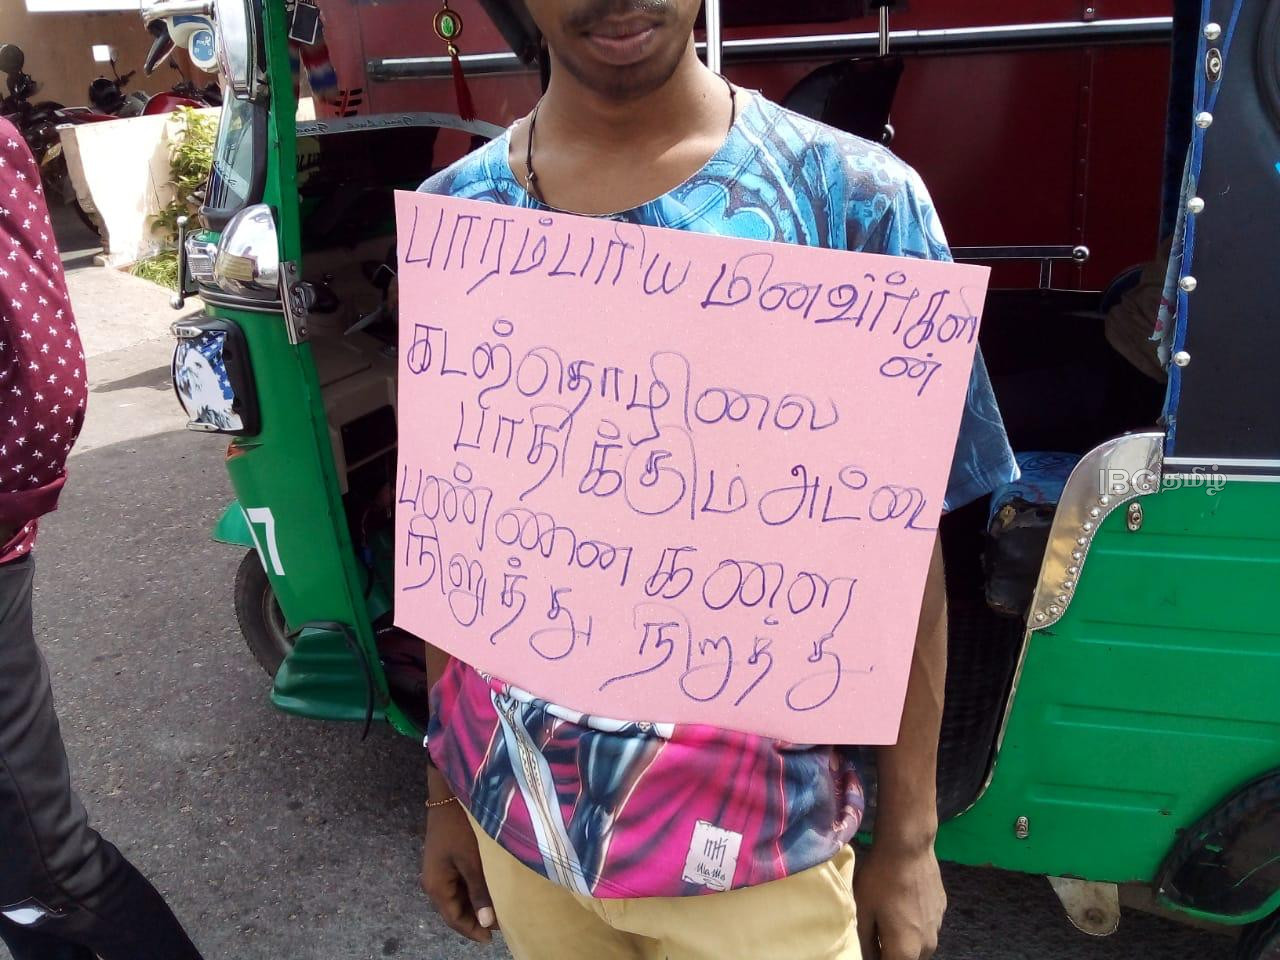 பாரம்பரிய மினவர்களி
ன்
கடற்தொழிலை
பாதிக்கும் அட்டை
பண்ணை களை
நிறுத்து நிறுத்து
IBC தமிழ்
Good Luck
7